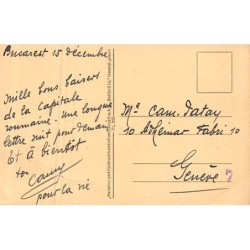 Bucarest 15 décembre
Mille bons baisers
de la Capitale
roumaine. Une longue
lettre suit pour demain
Et à bientôt
ton
Camy
pour la vie
Mr Cam. Patay
10 Adhémar Fabri 10
Genève